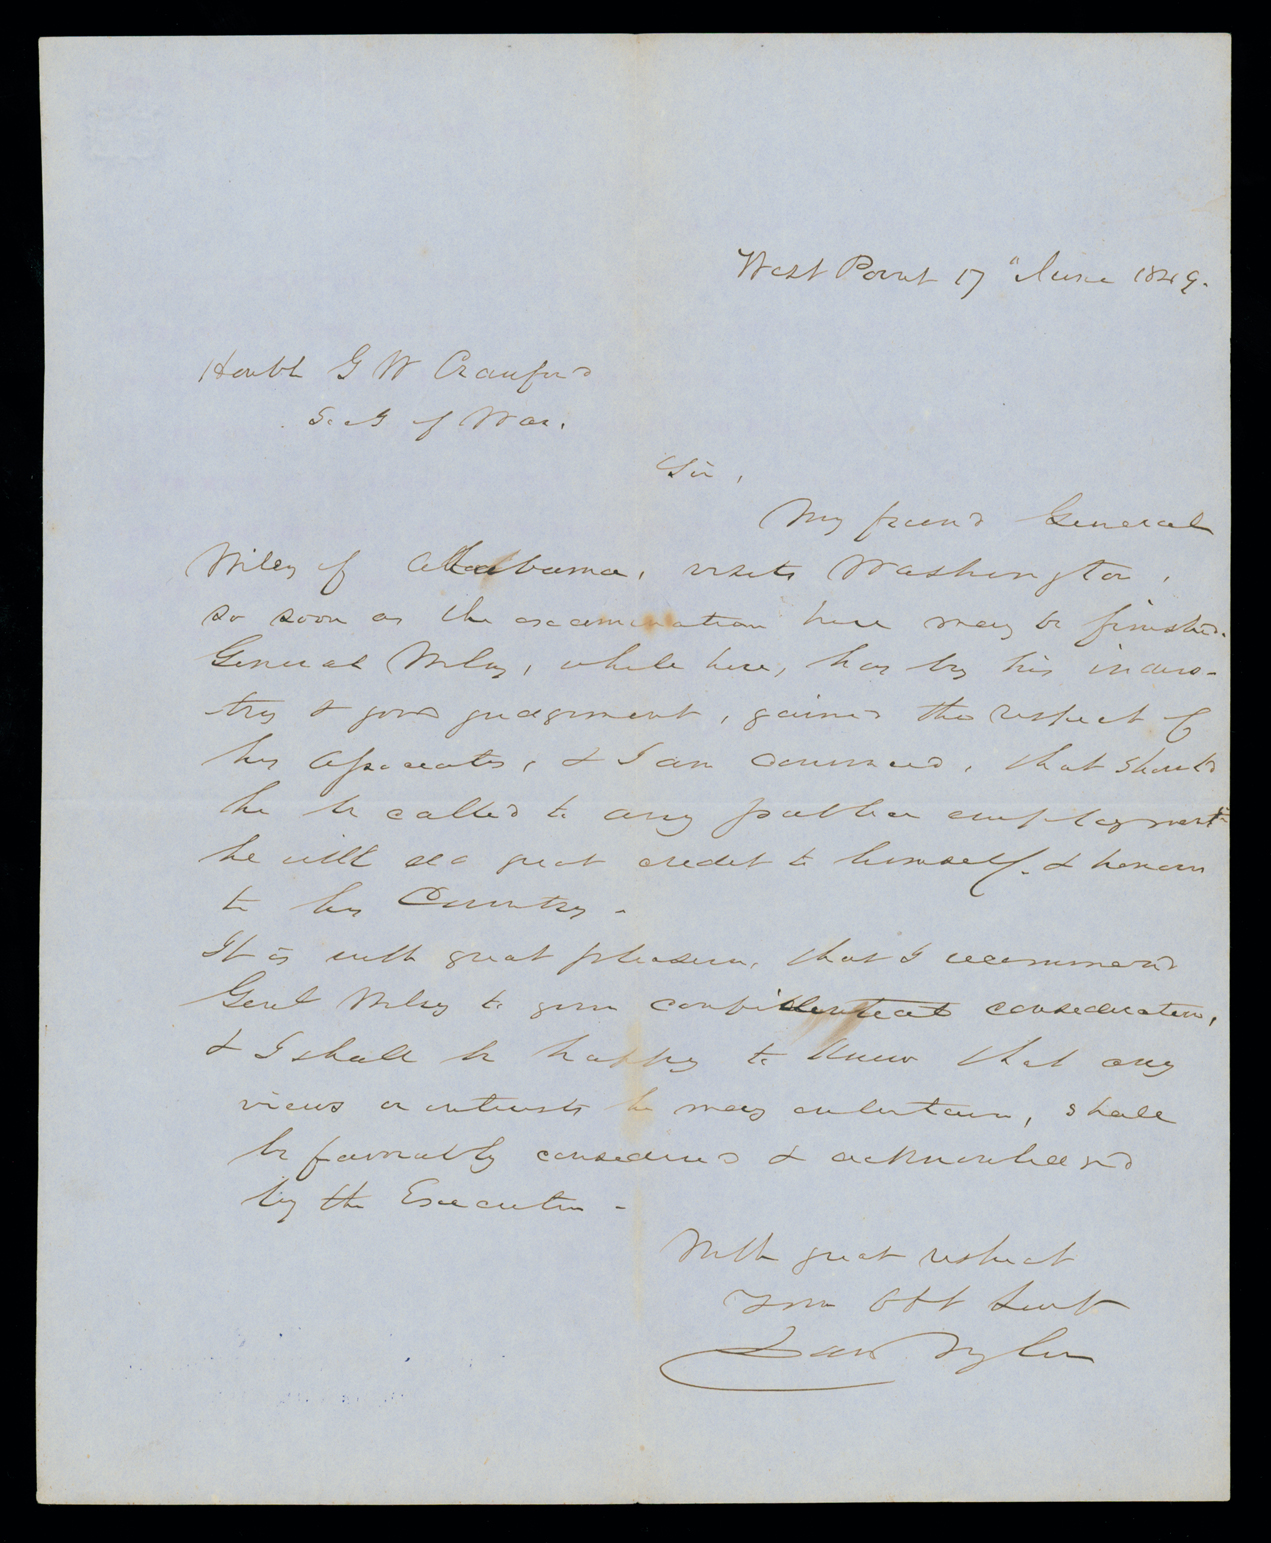 West Point 17" June 1849.
Honbl G W Crawford
Sec'y of War.
Sir,
My friend General
Wiley of Alabama, visits Washington,
so soon as the examination here may be finished.
General Wiley, while here, has by his indus-
try & good judgment, gained the respect of
his associates, & I am convinced, that should
he be called to any public employment
he will do great credit to himself, & honour
to his Country.
It is with great pleasure, that I recommend
Genl Wiley to your confidential consideration,
& I shall be happy to know that any
views or interests he may entertain, shall
be favorably considered & acknowledged
by the Executive.
With great respect
Your Obt Servt
Dan Tyler